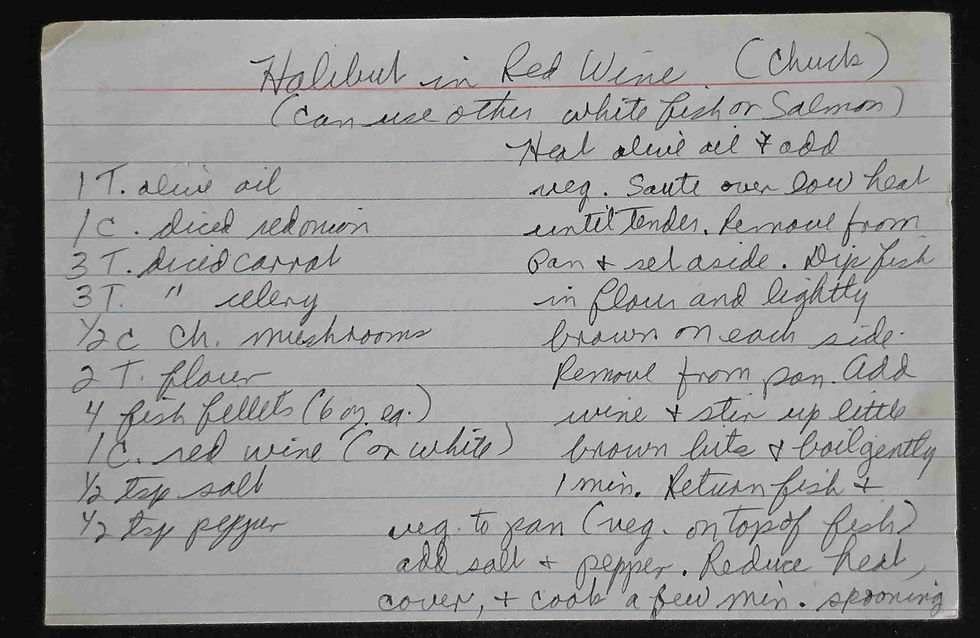 Halibut in Red Wine (Chuck)
(Can use other white fish or Salmon)
1 T. olive oil
1 C. diced red onion
3 T. diced carrot
3 T. " celery
1/2 c Ch. mushrooms
2 T. flour
4 fish fellets (6 oz. ea.)
1 C. red wine (or white)
1/2 tsp salt
1/2 tsp pepper
Heat olive oil & add
veg. Saute over low heat
until tender. Remove from
pan & set aside. Dip fish
in flour and lightly
brown on each side.
Remove from pan. Add
wine & stir up little
brown bits & boil gently
1 min. Return fish +
veg. to pan (veg. on top of fish)
add salt + pepper. Reduce heat,
cover, + cook a few min. spooning